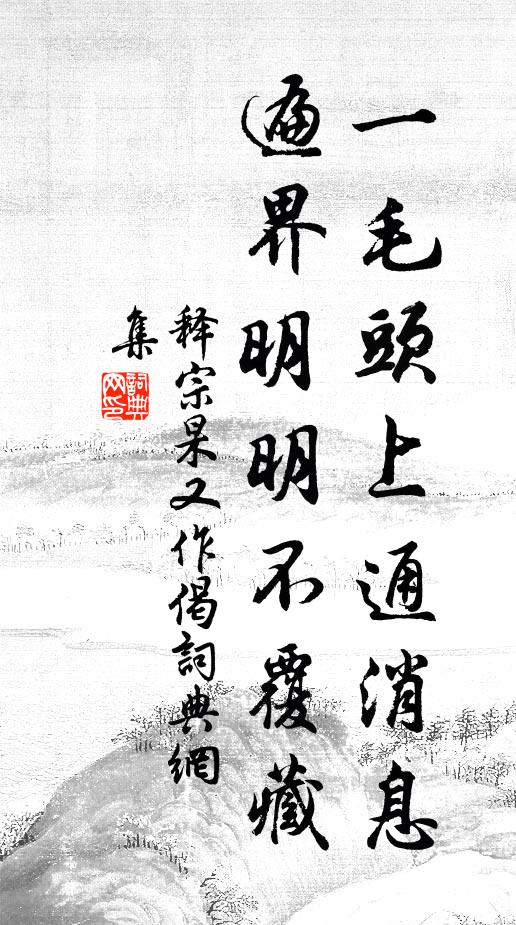 一毛頭上通消息
遍界明明不覆藏
释宗杲又作偈詞典網
集
詞典网印